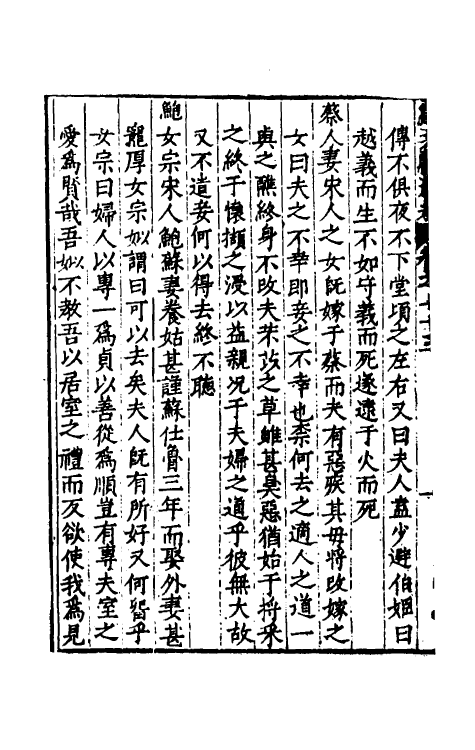 傳不俱夜不下堂頃之左右又曰夫人盍少避伯姬曰
越義而生不如守義而死遂逮于火而死
蔡人妻宋人之女既嫁于蔡而夫有惡疾其毋將改嫁之
女曰夫之不幸即妾之不幸也柰何去之適人之道一
與之醮終身不改夫芣苡之草雖甚臭惡猶始于捋采
之終于懷擷之浸以益親况于夫婦之道乎彼無大故
又不遣妾何以得去終不聽
鮑女宗宋人鮑蘇妻養姑甚謹蘇仕魯三年而娶外妻甚
寵厚女宗姒謂曰可以去矣夫人既有所好又何留乎
女宗曰婦人以專一爲貞以善從爲順豈有專夫室之
愛爲賢哉吾姒不教吾以居室之禮而反欲使我爲見